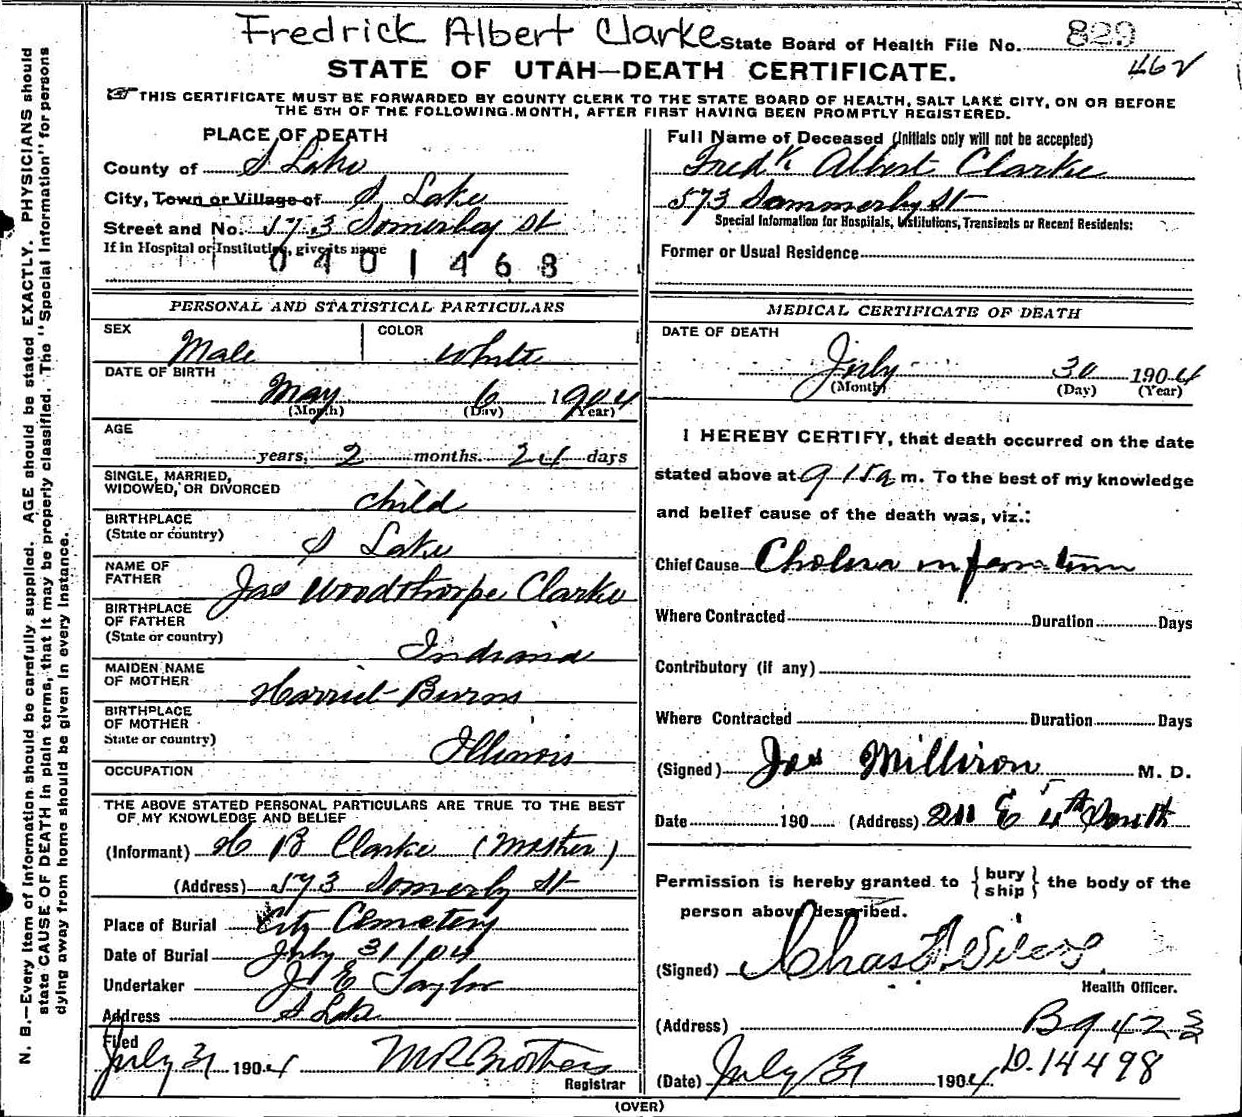 Fredrick Albert Clarke State Board of Health File No. 829
462
STATE OF UTAH—DEATH CERTIFICATE.
THIS CERTIFICATE MUST BE FORWARDED BY COUNTY CLERK TO THE STATE BOARD OF HEALTH, SALT LAKE CITY, ON OR BEFORE
THE 5TH OF THE FOLLOWING MONTH, AFTER FIRST HAVING BEEN PROMPTLY REGISTERED.
N. B.—Every item of information should be carefully supplied. AGE should be stated EXACTLY. PHYSICIANS should
state CAUSE OF DEATH in plain terms, that it may be properly classified. The "Special Information" for persons
dying away from home should be given in every instance.
PLACE OF DEATH
County of S Lake
City, Town or Village of S Lake
Street and No. 573 Somerby St
If in Hospital or Institution, give its name
0401468
Full Name of Deceased (Initials only will not be accepted)
Fredk Albert Clarke
573 Sommerby St
Special Information for Hospitals, Institutions, Transients or Recent Residents:
Former or Usual Residence
PERSONAL AND STATISTICAL PARTICULARS
SEX Male COLOR White
DATE OF BIRTH
May 6 1904
(Month) (Day) (Year)
AGE
years, 2 months. 24 days
SINGLE, MARRIED,
WIDOWED, OR DIVORCED child
BIRTHPLACE
(State or country) S Lake
NAME OF
FATHER Jas Woodthorpe Clarke
BIRTHPLACE
OF FATHER
(State or country) Indiana
MAIDEN NAME
OF MOTHER Harriet Burns
BIRTHPLACE
OF MOTHER
State or country) Illinois
OCCUPATION
THE ABOVE STATED PERSONAL PARTICULARS ARE TRUE TO THE BEST
OF MY KNOWLEDGE AND BELIEF
(Informant) H B Clarke (Mother)
(Address) 573 Somerby St
Place of Burial City Cemetery
Date of Burial July 31/04
Undertaker J E Taylor
Address S Lake
Filed
July 31 1904 Registrar
MEDICAL CERTIFICATE OF DEATH
DATE OF DEATH
July 30 1904
(Month) (Day) (Year)
I HEREBY CERTIFY, that death occurred on the date
stated above at 9 15 a m. To the best of my knowledge
and belief cause of the death was, viz.:
Chief Cause Cholera infantum
Where Contracted Duration Days
Contributory (if any)
Where Contracted Duration Days
(Signed) Jos Milliron M. D.
Date 190 (Address) 211 E 4th South
Permission is hereby granted to {bury ship} the body of the
person above described.
(Signed) Chas
Health Officer.
(Address) B9 423
D. 14498
(Date) July 31 1904
(OVER)